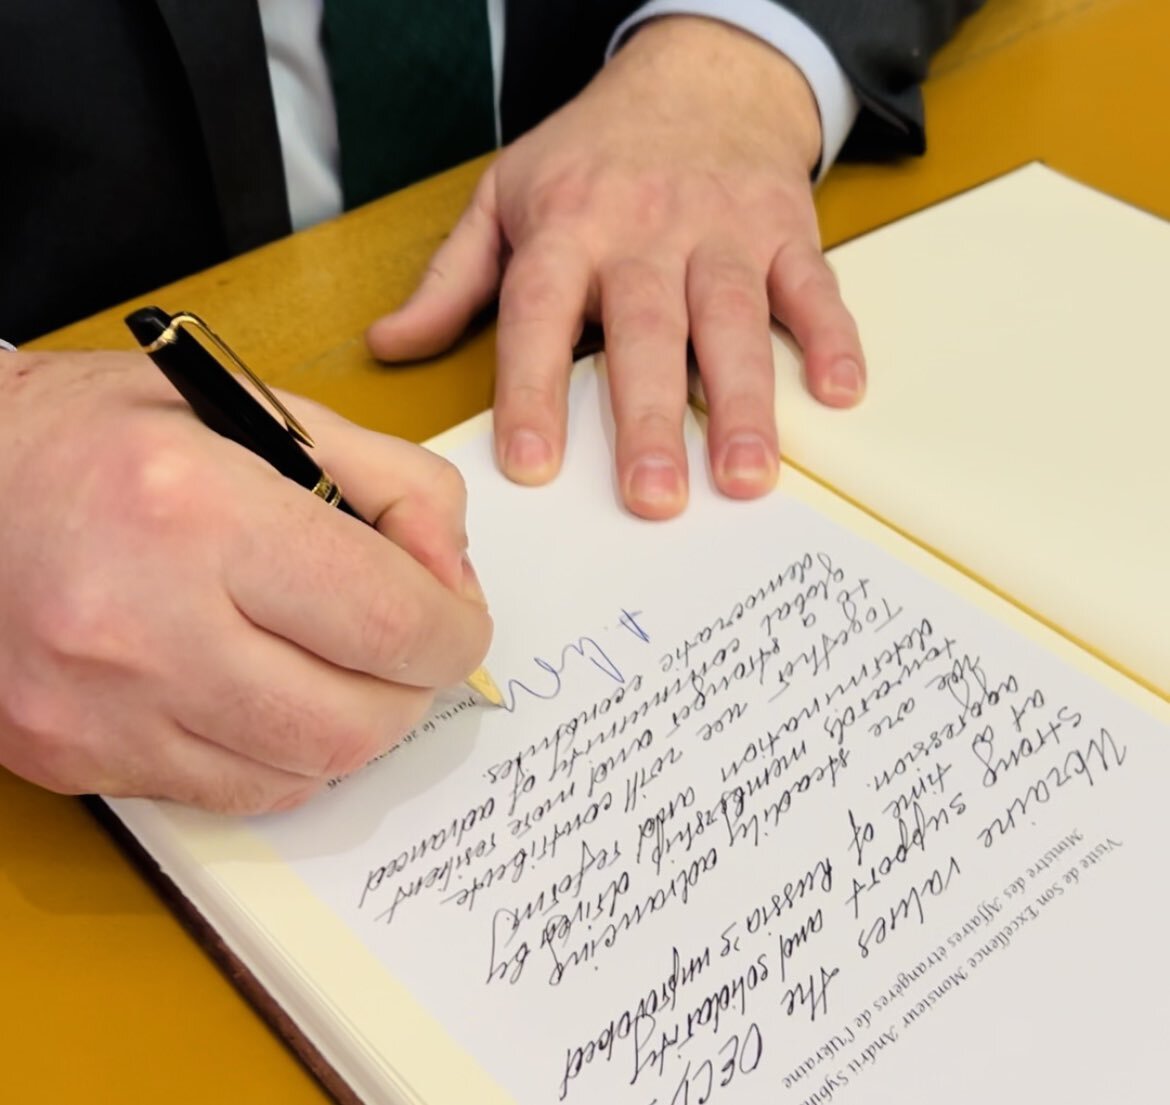 Visite de Son Excellence Monsieur Andrii Sybi
Ministre des Affaires étrangères de l'Ukraine
Ukraine values the OECD's
strong support and solidarity
at a time of Russia's unprovoked
aggression.
We are steadily advancing
towards membership driven by
determination and reform.
Together we will contribute
to a stronger and more resilient
global community of advanced
democratic economies.
A.
Paris, le 26